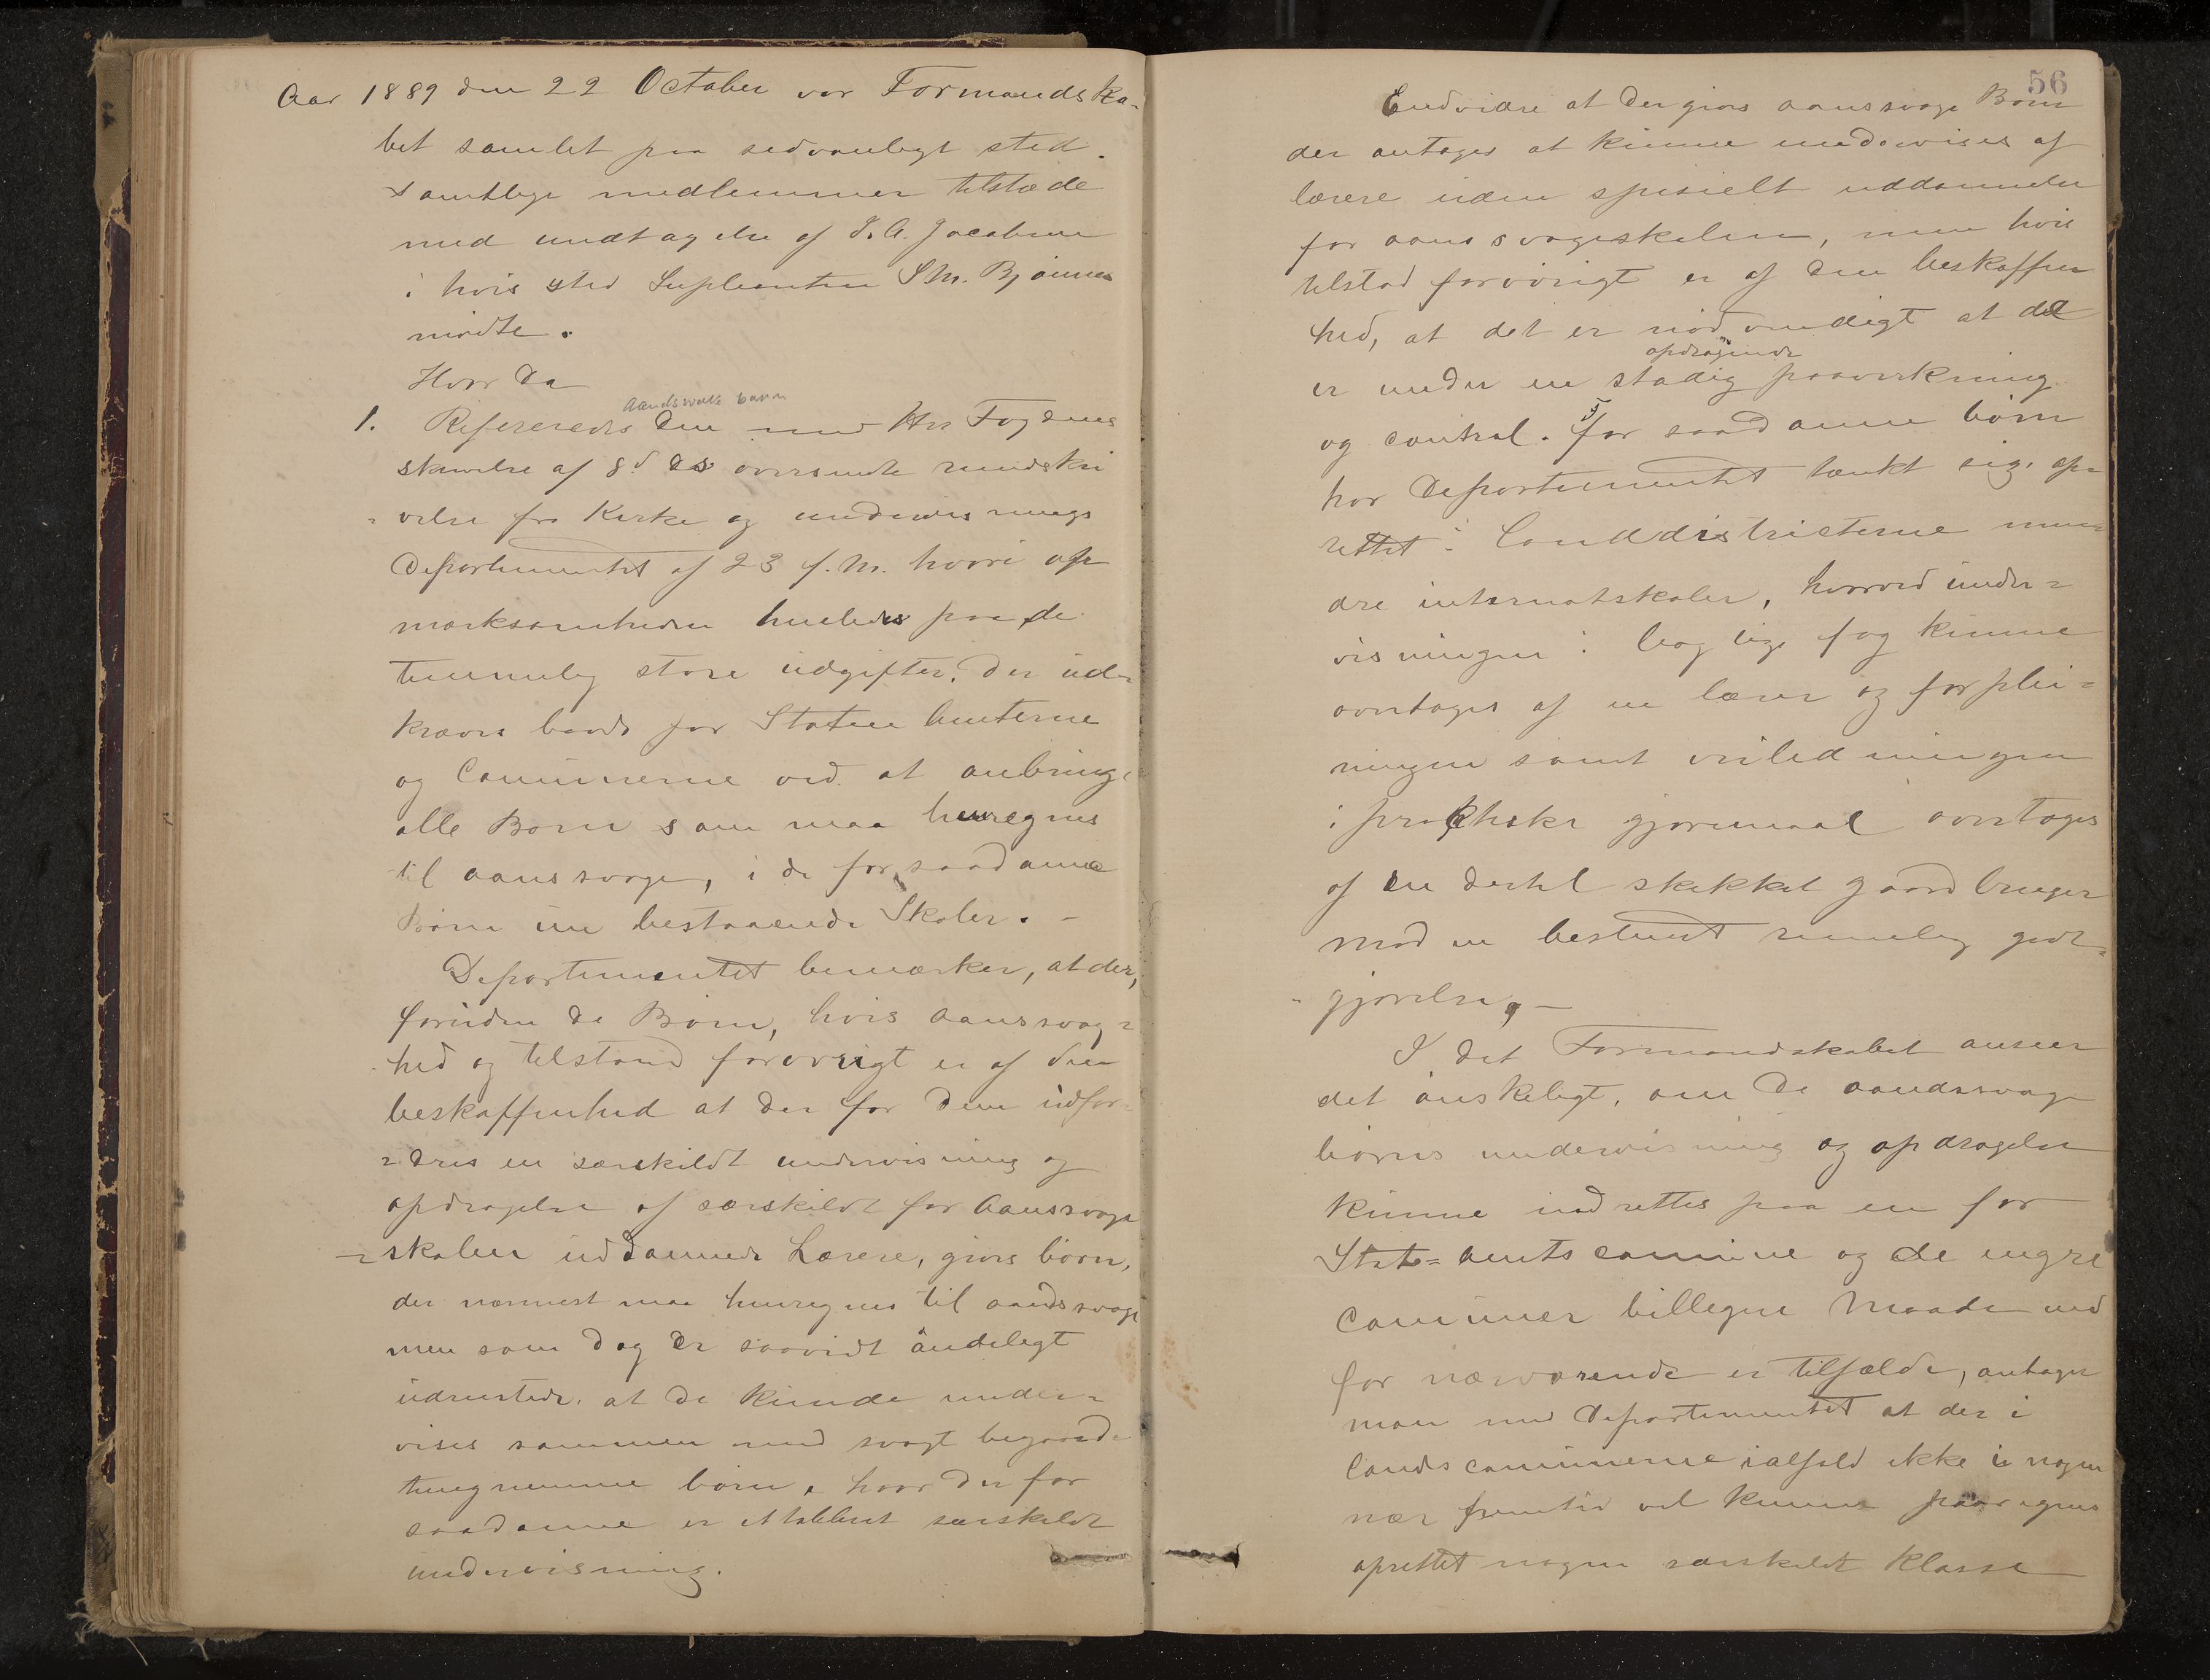 Aar 1889 den 22 October var Formandska-
bet samlet paa sedvanligt sted.
samtlige medlemmer tilstæde
med undtagelse af J. A. Jacobsen
i hvis sted Supleanten S M. Bjønnes
mødte.
Hvor da
Aandsvake barn
1. Refereredes den med Hr Fogdens
skrivelse af 8d ds oversendte rundskri
=velse fra Kirke og undervisnings
Departementet af 23 f. M. hvori op
mærksomheden henledes paa de
temmelig store udgifter, der ud-
kræves baade for Staten Amterne
og Communerne ved at anbringe
alle Børn som maa henregnes
til aanssvage, i de for saadanne
Børn nu bestaaende Skoler. -
Departementet bemærker, at der,
foruden de Børn, hvis aanssvag=
hed og tilstand forøvrigt er af den
beskaffenhed at der for dem udfor=
=dres en særskildt undervisning og
opdragelse af særskildt for Aanssvage
=skolen uddannede Lærere, gives børn,
der nærmest maa henregnes til aandssvage
men som dog er saavidt åndeligt
udrustede, at de kunde under=
vises sammen med svagt begavede
tungnemme børn, hvor der for
saadanne er etableret særskildt
undervisning.
56
Endvidere at der gives aanssvage Børn
der antages at kunne undervises af
lærere uden spesielt uddannelse
for aanssvageskolen, men hvis
tilstad forøvrigt er af den beskaffen
hed, at det er nødvendigt at de
opdragende
er under en stadig paavirkning
og control. For saadanne børn
har Departementet tænkt sig op=
rettet i Landdistricterne min=
dre internatskoler, hvorved under=
visningen i boglige fag kunne
overtages af en lærer og forplei=
ningen samt veiledningen
i praktiske gjøremaal overtages
af en dertil skikket gaardbruger
mod en bestemt rimelig godt=
=gjørelse, -
I det Formandskabet anseer
det ønskeligt, om de aandssvage
børns undervisning og opdragelse
kunne indrettes paa en for
Stats= amts comune og de engre
comuner billegere Maade end
for nærværende er tilfælde, antager
man med Departementet at der i
landscommunerne ialfald ikke i nogen
nær fremtid vil kunne paaregnes
oprettet nogen særskildt Klasse